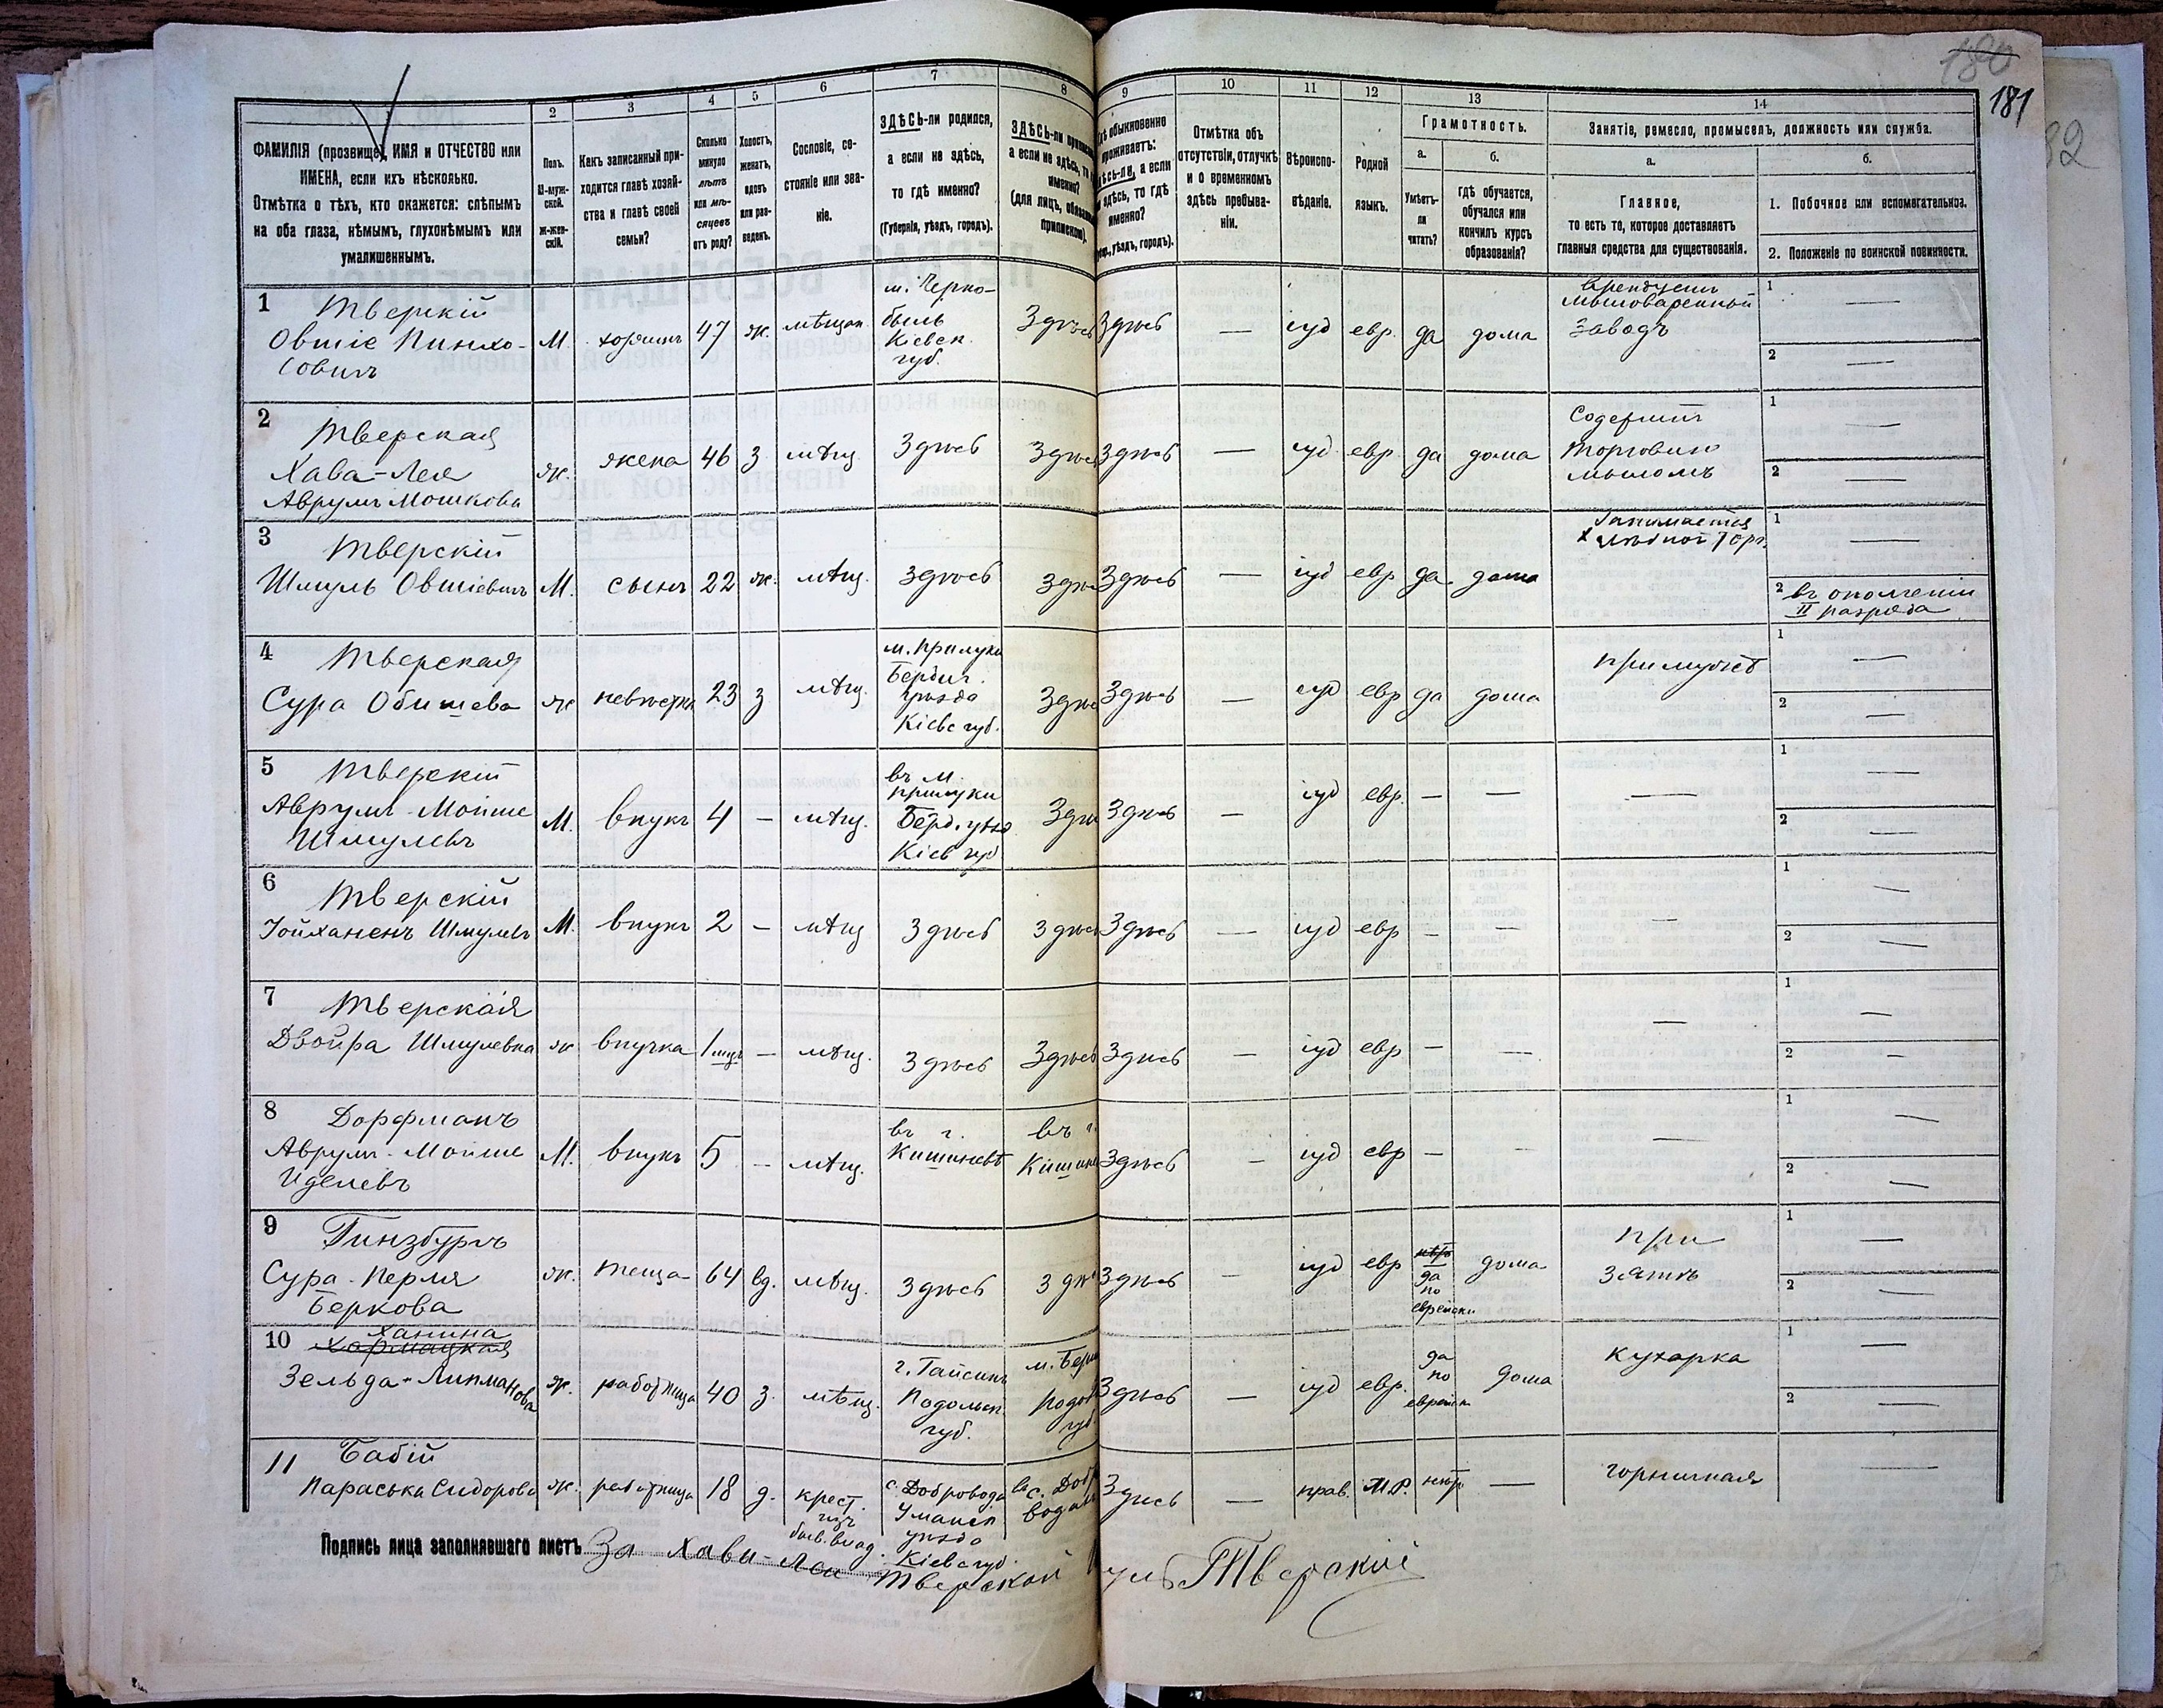 180
181
82
1 2 3 4 5 6 7 8 9 10 11 12 13 14
ФАМИЛІЯ (прозвище), ИМЯ и ОТЧЕСТВО или
ИМЕНА, если ихъ нѣсколько.
Отмѣтка о тѣхъ, кто окажется: слѣпымъ
на оба глаза, нѣмымъ, глухонѣмымъ или
умалишеннымъ.
Полъ.
М-муж-
ской.
Ж-жен-
скій.
Какъ записанный при-
ходится главѣ хозяй-
ства и главѣ своей
семьи?
Сколько
минуло
лѣтъ
или мѣ-
сяцевъ
отъ роду?
Холостъ,
женатъ,
вдовъ
или раз-
веденъ.
Сословіе, со-
стояніе или зва-
ніе.
ЗДѢСЬ-ли родился,
а если не здѣсь,
то гдѣ именно?
(Губернія, уѣздъ, городъ).
ЗДѢСЬ-ли
а если не здѣсь, то
именно?
(для лицъ,
обыкновенно
проживаетъ:
а если
здѣсь, то гдѣ
именно?
уѣздъ, городъ).
Отмѣтка объ
отсутствіи, отлучкѣ
и о временномъ
здѣсь пребыва-
ніи.
Вѣроиспо-
вѣданіе.
Родной
языкъ.
Грамотность.
а.
Умѣетъ-
ли
читать?
б.
гдѣ обучается,
обучался или
кончилъ курсъ
образованія?
Занятіе, ремесло, промыселъ, должность или служба.
а.
Главное,
то есть то, которое доставляетъ
главныя средства для существованія.
б.
1. Побочное или вспомогательное.
2. Положеніе по воинской повинности.
1 Тверскій
Овшіе Пинхо-
совичъ
М. хозяинъ 47 ж. мѣщан.
м. Черно-
быль
Кіевск.
губ.
Здѣсь Здѣсь — іуд евр. да дома
Арендуетъ
мыловаренный
заводъ
1 —
2 —
2 Тверская
Хава-Лея
Аврумъ Мошкова
ж. жена 46 з мѣщ Здѣсь Здѣсь Здѣсь — іуд евр да дома
Содержитъ
торговлю
мыломъ
1 —
2 —
3 Тверскій
Шмуль Овшіевичъ
М. сынъ 22 ж. мѣщ. Здѣсь Здѣсь — іуд евр да дома
Занимается
1 —
2 въ ополченіи
II разряда
4 Тверская
Сура
ж невѣстка 23 з мѣщ.
м. Прилуки
Бердич.
уѣзда
Кіевс губ.
Здѣсь — іуд евр да дома
при мужѣ
1 —
2 —
5 Тверскій
Аврумъ-Мойше
Шмулевъ
М. внукъ 4 — мѣщ.
въ м.
Прилуки
Берд. уѣз
Кіев губ
Здѣсь — іуд евр. — — —
1 —
2 —
6 Тверскій
Іойханенъ Шмулевъ
М. внукъ 2 — мѣщ Здѣсь Здѣсь — іуд евр — — —
1
2 —
7 Тверская
Двойра Шмулевна
ж внучка 1 — мѣщ. Здѣсь Здѣсь Здѣсь — іуд евр — — —
1 —
2 —
8 Дорфманъ
Аврумъ-Мойше
Иделевъ
М. внукъ 5 — мѣщ.
въ г.
Кишиневѣ
въ г.
Здѣсь — іуд евр — — —
1 —
2 —
9 Гинзбургъ
Сура-Перля
Беркова
ж. теща 64 вд. мѣщ. Здѣсь Здѣсь — іуд евр
нѣтъ
да
по
еврейски
дома
при
зятѣ
1 —
2 —
10 Ханина
Зельда-Липманова
ж. работница 40 з. мѣщ.
г. Гайсинъ
Подольск.
губ.
Здѣсь — іуд евр.
да
по
еврейск
дома
кухарка
1 —
2 —
11 Бабій
Параська Сидорова
ж. работница 18 д.
крест.
изъ
быв. влад.
с. Добровода
Уманск
уѣзда
Кіевс губ.
Здѣсь — прав. М.Р. нѣтъ —
горничная
—
Подпись лица заполнявшаго листъ За Хаву-Лею Тверскую
Тверскій